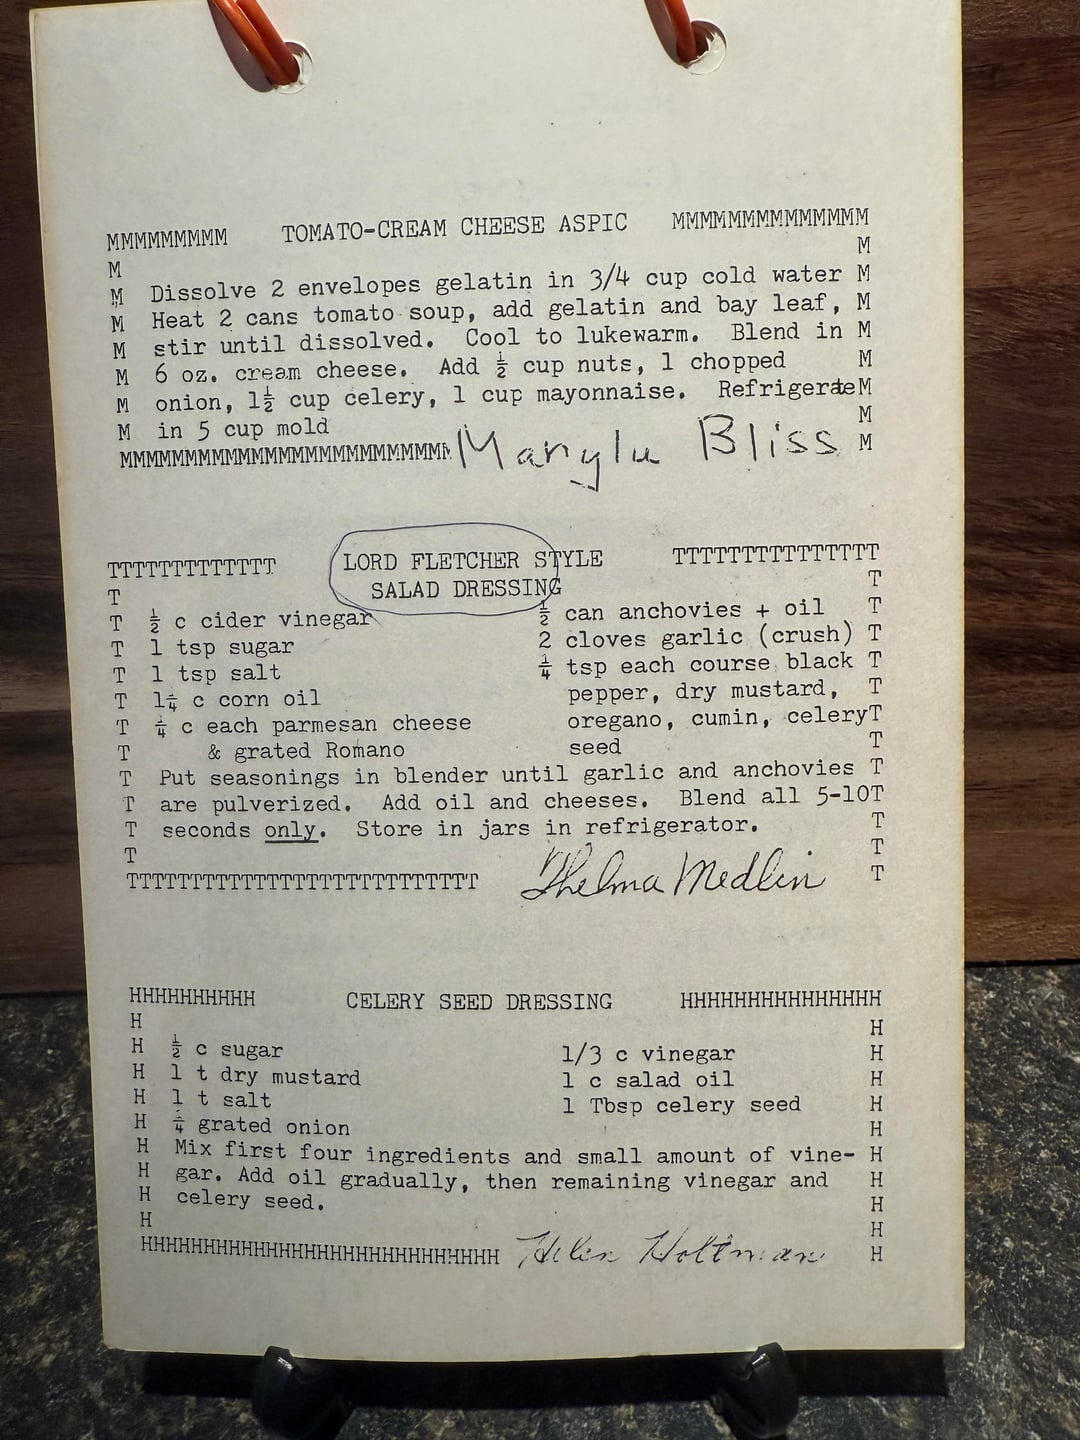 MMMMMMMMM TOMATO-CREAM CHEESE ASPIC MMMMMMMMMMMMMM
M M
M Dissolve 2 envelopes gelatin in 3/4 cup cold water M
M Heat 2 cans tomato soup, add gelatin and bay leaf, M
M stir until dissolved. Cool to lukewarm. Blend in M
M 6 oz. cream cheese. Add ½ cup nuts, 1 chopped M
M onion, 1½ cup celery, 1 cup mayonnaise. Refrigerate M
M in 5 cup mold M
MMMMMMMMMMMMMMMMMMMMMMMMMM Marylu Bliss M
TTTTTTTTTTTTT LORD FLETCHER STYLE TTTTTTTTTTTTTTT
T SALAD DRESSING T
T ½ c cider vinegar ½ can anchovies + oil T
T 1 tsp sugar 2 cloves garlic (crush) T
T 1 tsp salt ¼ tsp each course black T
T 1¼ c corn oil pepper, dry mustard, T
T ¼ c each parmesan cheese oregano, cumin, celery T
T & grated Romano seed T
T Put seasonings in blender until garlic and anchovies T
T are pulverized. Add oil and cheeses. Blend all 5-10 T
T seconds only. Store in jars in refrigerator. T
T T
TTTTTTTTTTTTTTTTTTTTTTTTTTT Thelma Medlin T
HHHHHHHHHH CELERY SEED DRESSING HHHHHHHHHHHHHHH
H H
H ½ c sugar 1/3 c vinegar H
H 1 t dry mustard 1 c salad oil H
H 1 t salt 1 Tbsp celery seed H
H ¼ grated onion H
H Mix first four ingredients and small amount of vine- H
H gar. Add oil gradually, then remaining vinegar and H
H celery seed. H
H H
HHHHHHHHHHHHHHHHHHHHHHHHHHHH Helen Holtman H